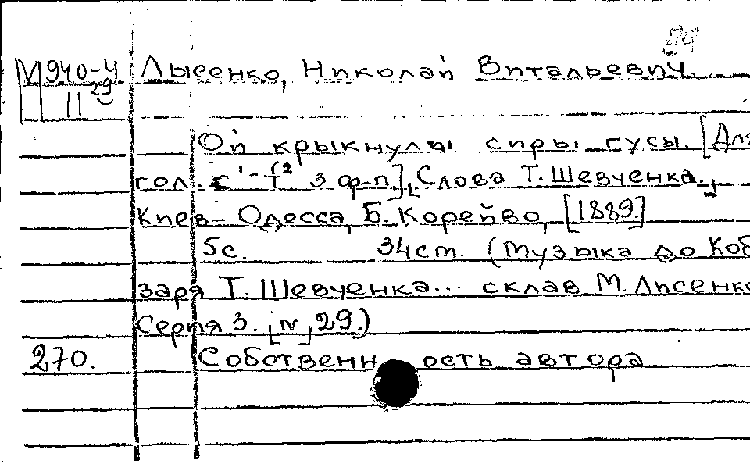 М 940-4 Лысенко, Николай Витальевич.
II 9
Ой крыкнулы сиры гусы. [Для
гол. с 3 ф-п.], Слова Т. Шевченка.,
Киев-Одесса, Б. Корейво, [1889.]
5с. 34см. (Музыка до Коб
заря Т. Шевченка... склав М. Лисенко
Серия 3. [№, 29.)
270. Собственность автора